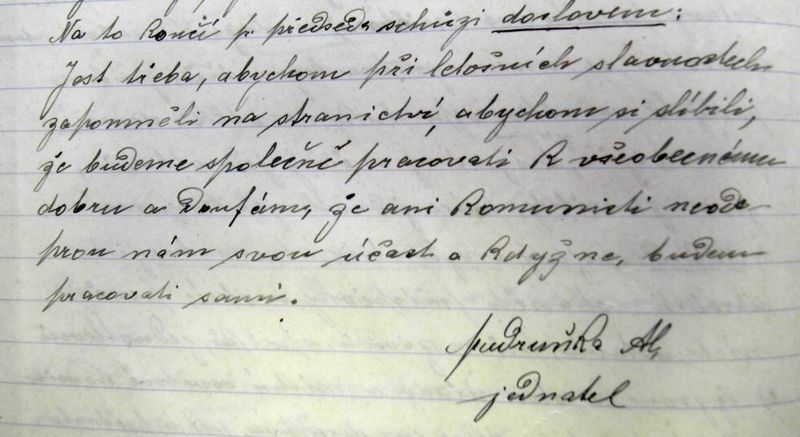 Na to končí p. předseda schůzi doslovem:
Jest třeba, abychom při letošních slavnostech
zapomněli na stranictví, abychom si slíbili,
že budeme společně pracovati k všeobecnému
dobru a doufám, že ani komunisti neode-
prou nám svou účast a když ne, budem
pracovati sami.
jednatel